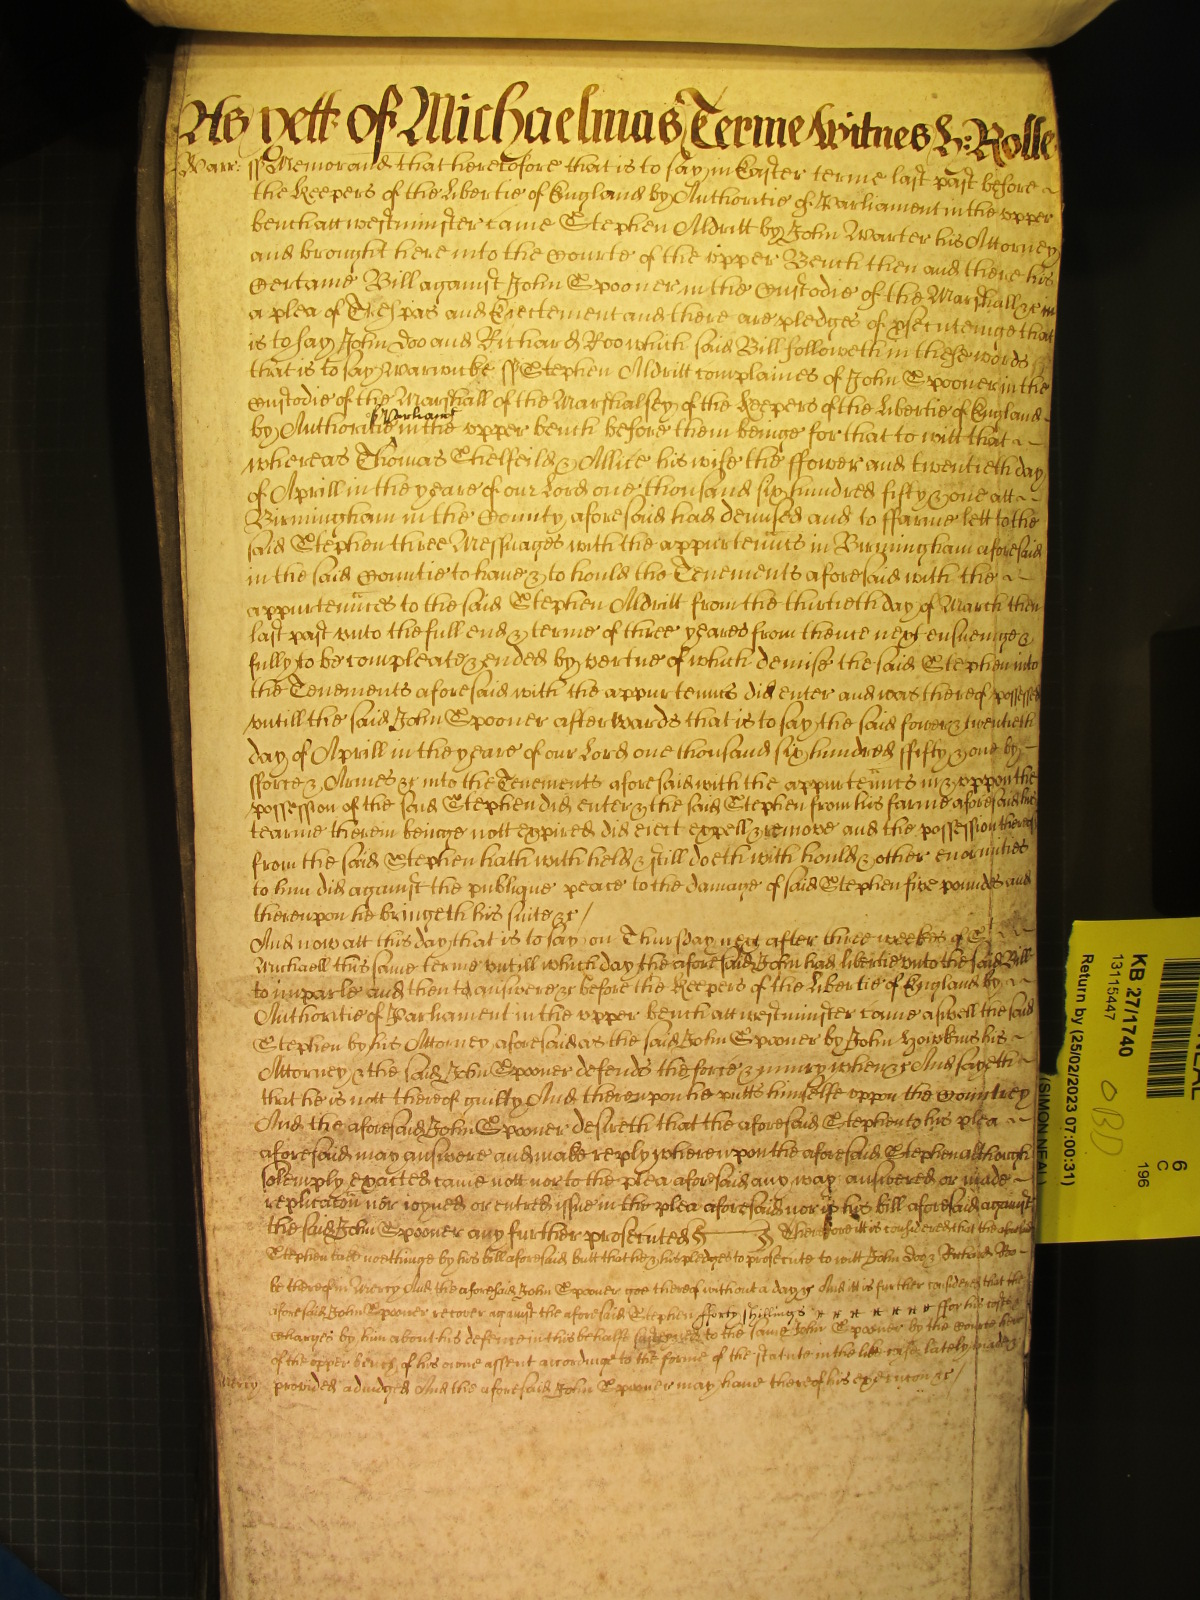 As yett of Michaelmas Terme Witnes H: Rolle
Warr: ss Memorand that heretofore that is to say in Easter terme last past before
the Keepers of the libertie of England by Authoritie of Parliament in the vpper
bench att westminster came Stephen Aldritt by John Warter his Attorney
and brought here into the Courte of the vpper Bench then and there his
Certaine Bill against John Spooner in the Custodie of the Marshall &c in
a plea of Trespas and Eiectement and there are pledges of psecuteinge that
is to say John Doo and Richard Roo which said Bill followeth in these words
that is to say Warwicke ss Stephen Aldritt complaines of John Spooner in the
Custodie of the Marshall of the Marshalsey of the Keepers of the libertie of England
by Authoritie of Parliamt in the vpper bench before them beinge for that to witt that
whereas Thomas Shelfeild & Allice his wife the ffower and twentieth day
of Aprill in the yeare of our Lord one thousand six hundred fifty & one att
Birmingham in the County aforesaid had demised and to ffarme lett to the
said Stephen three Messuages with the appurtennts in Birmingham aforesaid
in the said Countie to haue & to hould the Tenements aforesaid with the
appurtennces to the said Stephen Aldritt from the thirtieth day of March then
last past vnto the full end & terme of three yeares from thence next ensueinge &
fully to be compleate & ended by vertue of which demise the said Stephen into
the Tenements aforesaid with the appurtennts did enter and was thereof possessed
vntill the said John Spooner afterwards that is to say the said fower & twentieth
day of Aprill in the yeare of our Lord one thousand six hundred ffifty & one by
fforce & Armes &c into the Tenements aforesaid with the appurtennts in & vppon the
possession of the said Stephen did enter & the said Stephen from his farme aforesaid his
tearme therein beinge nott expired did eiect expell & remove and the possession thereof
from the said Stephen hath with held & still doeth with hould & other enormities
to him did against the publique peace to the damage of said Stephen five pounds and
therevpon he bringeth his suite &c /
And now att this day that is to say on Thursday next after three weekes of St
Michaell this same terme vntill which day the aforesaid John had libertie vnto the said Bill
to imparle and then to answere &c before the Keepers of the libertie of England by
Authoritie of Parliament in the vpper bench att westminster came aswell the said
Stephen by his Attorney aforesaid as the said John Spooner by John Howkins his
Attorney & the said John Spooner defends the force & iniury when &c And sayeth
that he is nott thereof guilty And therevpon he putts himselfe vppon the Countrey
And the aforesaid John Spooner desireth that the aforesaid Stephen to his plea
aforesaid may answere and make reply wherevpon the aforesaid Stephen although
solemply exacted came nott nor to the plea aforesaid any way answered or made
replicacon nor ioyned or entred issue in the plea aforesaid nor his bill aforesaid against
the said John Spooner any further prosecuted Therefore itt is considered that the aforesaid
Stephen take noethinge by his bill aforesaid butt that he & his pledges to prosecute to witt John Doo & Richard Roo
be thereof in Mercy And the aforesaid John Spooner goe thereof without a day &c And itt is further considered that the
aforesaid John Spooner recover against the aforesaid Stephen fforty shillings ffor his costs &
charges by him about his defence in this behalfe to the same John Spooner by the Courte here
of the vpper bench of his owne assent accordinge to the forme of the statute in the like case lately made &
Mercy provided adiudged And the aforesaid John Spooner may haue thereof his execucon &c /
KB 27/1740
13115447
Return by (25/02/2023 07:00:31)
(SIMON NEAL)
OBD
6
C
196